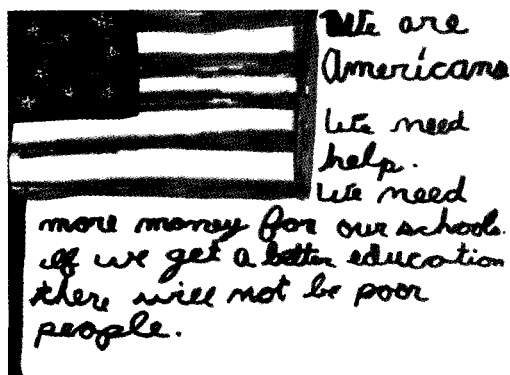 We are
Americans
We need
help.
We need
more money for our schools.
if we get a better education
there will not be poor
people.